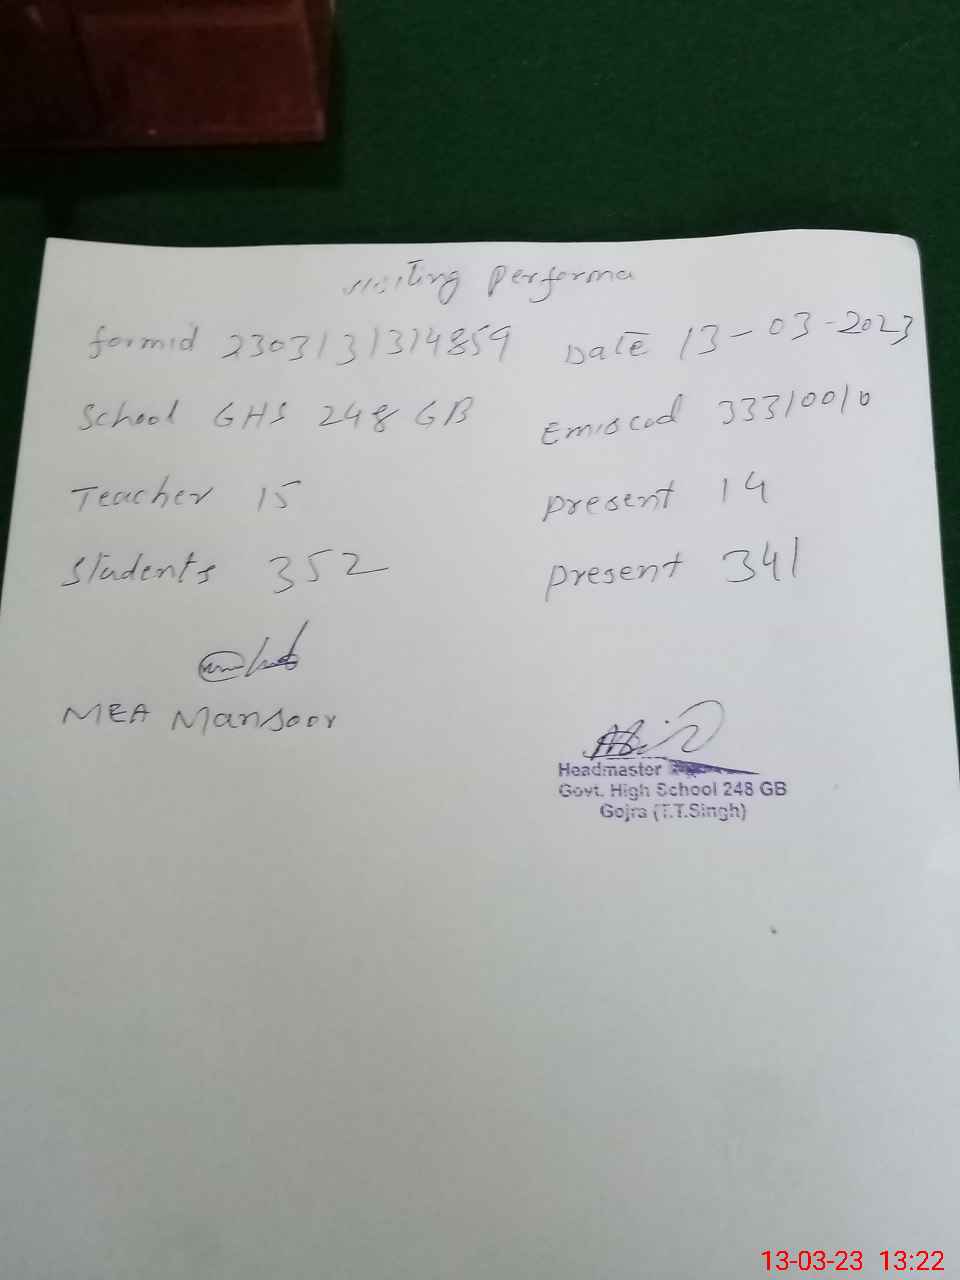 Visiting Performa
formid 2303131314859 Date 13-03-2023
School GHS 248 GB Emiscod 33310010
Teacher 15 present 14
Students 352 present 341
MEA Mansoor
Headmaster
Govt. High School 248 GB
Gojra (T.T.Singh)
13-03-23 13:22